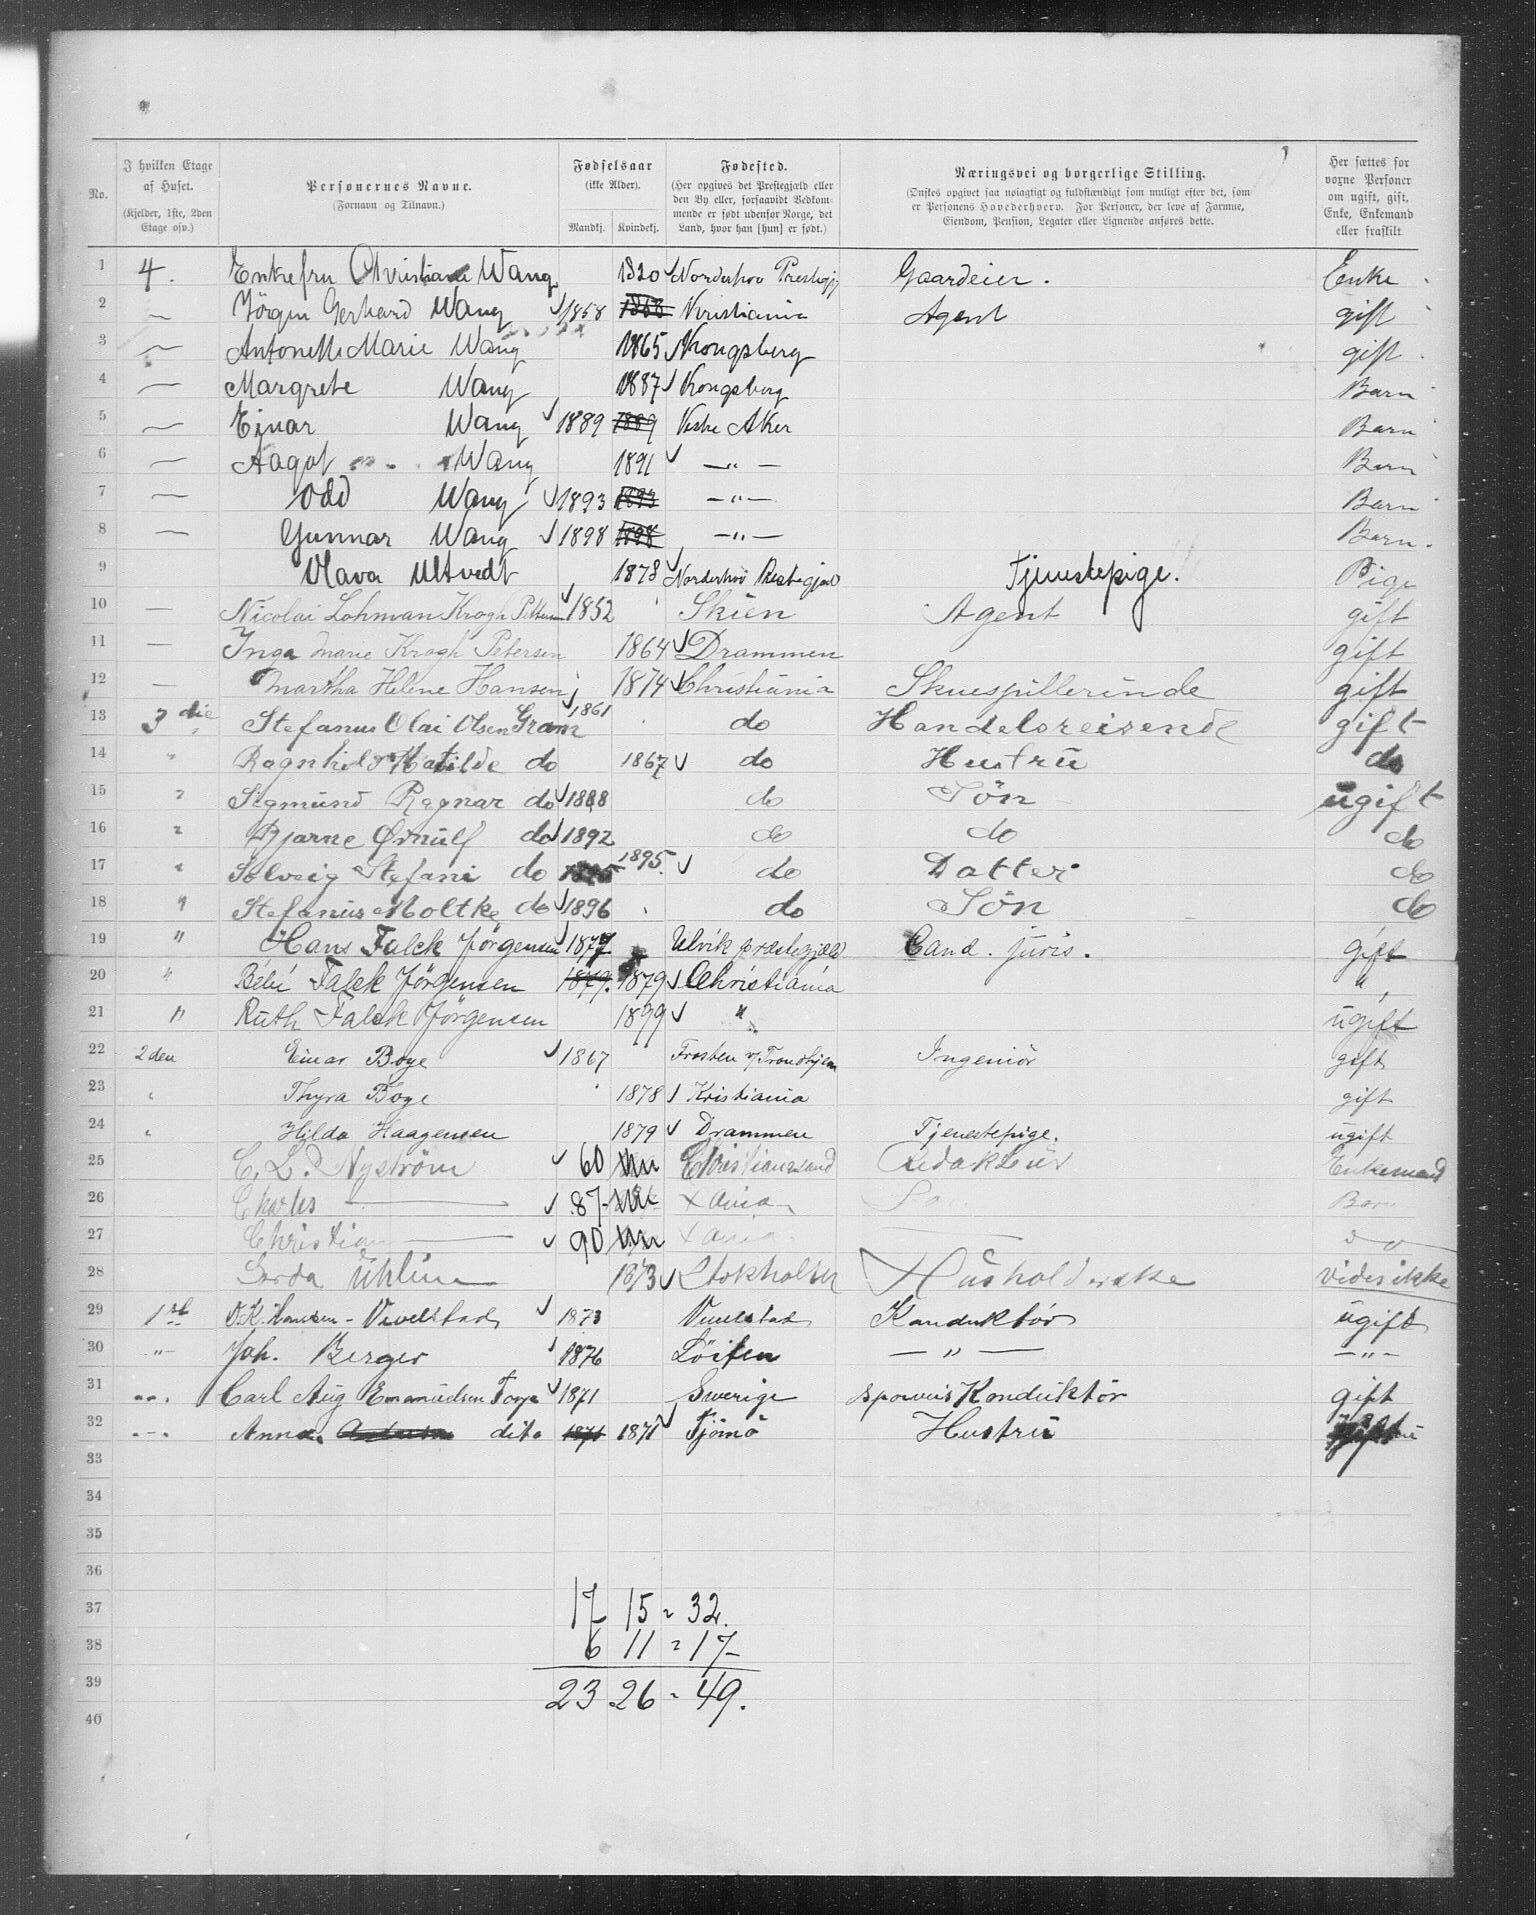 No. I hvilken Etage af Huset. (Kjelder, 1ste, 2den Etage osv.) Personernes Navne. (Fornavn og Tilnavn.) Fødselsaar (ikke Alder). Mandkj. Kvindekj. Fødested. (Her opgives det Prestegjæld eller den By eller, forsaavidt Vedkommende er født udenfor Norge, det Land, hvor han [hun] er født.) Næringsvei og borgerlige Stilling. (Ønskes opgivet saa nøiagtigt og fuldstændigt som muligt efter det, som er Personens Hovederhverv. For Personer, der leve af Formue, Eiendom, Pension, Legater eller Lignende anføres dette. Her sættes for voxne Personer om ugift, gift, Enke, Enkemand eller fraskilt
1 4. Enkefru Christiane Wang 1820 Norderhov Prestegj Gaardeier. Enke
2 — Jörgen Gerhard Wang 1858 1858 Kristiania Agent gift
3 — Antonette Marie Wang 1865 Kongsberg gift
4 — Margrete Wang 1887 Kongsberg Barn
5 — Ejnar Wang 1889 1889 Vestre Aker Barn
6 — Aagot Wang 1891 —"— Barn
7 — Odd Wang 1893 1893 —"— Barn
8 — Gunnar Wang 1898 1898 —"— Barn.
9 Olava Ultvedt 1873 Norderhov Prestegjæld Tjenestepige. Pige
10 — Nicolai Lohman Krogh Petersen 1852 Skien Agent gift
11 — Inga Marie Krogh Petersen 1864 Drammen gift
12 — Martha Helene Hansen 1874 Christiania Skuespillerinde gift
13 3die Stefanus Olai Olsen Gram 1861 do Handelsreisende gift
14 " Ragnhild Matilde do 1867 do Hustru do
15 " Sigmund Ragnar do 1888 do Sön ugift
16 " Bjarne Ørnulf do 1892 do do do
17 " Solveig Stefani do 1895 1895. do Datter do
18 " Stefanus Moltke do 1896 do Sön do
19 " Hans Falck Jörgensen 1877 Ulvik præstegjæld Cand. juris. gift
20 " Bébé Falck Jörgensen 1879. 1879 Christiania "
21 " Ruth Falck Jörgensen 1899 " ugift
22 2den Einar Boye 1867 Frosten v/Trondhjem Ingeniör gift
23 " Thyra Boye 1878 Kristiania gift
24 " Hilda Haagensen 1879 Drammen Tjenestepige. ugift
25 C. L. Nyström 60 Christianssand Redaktür Enkemand
26 Charles — 87 Xania Barn
27 Christian — 90 Xania — do
28 Gerda Uhlin 1873 Stokholm Husholderske vides ikke
29 1ste O.K. Hansen-Vevelstad 1873 Vevelstad Konduktör ugift
30 —"— Joh. Berger 1876 Löiten —"— —"—
31 —"— Carl Aug Emanuelsen Torp 1871 Sverige sporveis Konduktör gift
32 —"— Anna dito 1871 1871 Tjömö Hustru gift
33
34
35
36
37 17 15 = 32.
38 6 11 = 17
39 23 26 = 49.
40